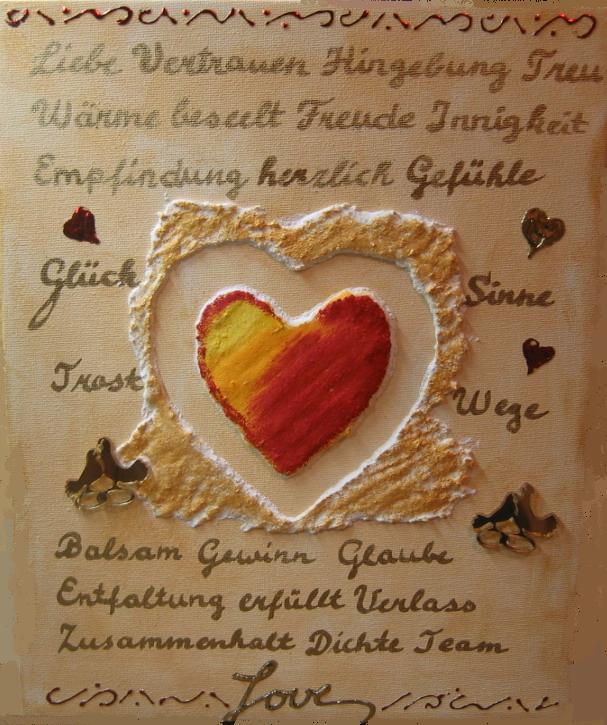 Liebe Vertrauen Hingebung Treu
Wärme beseelt Freude Innigkeit
Empfindung herzlich Gefühle
Glück
Sinne
Trost
Wege
Balsam Gewinn Glaube
Entfaltung erfüllt Verlass
Zusammenhalt Dichte Team
Love